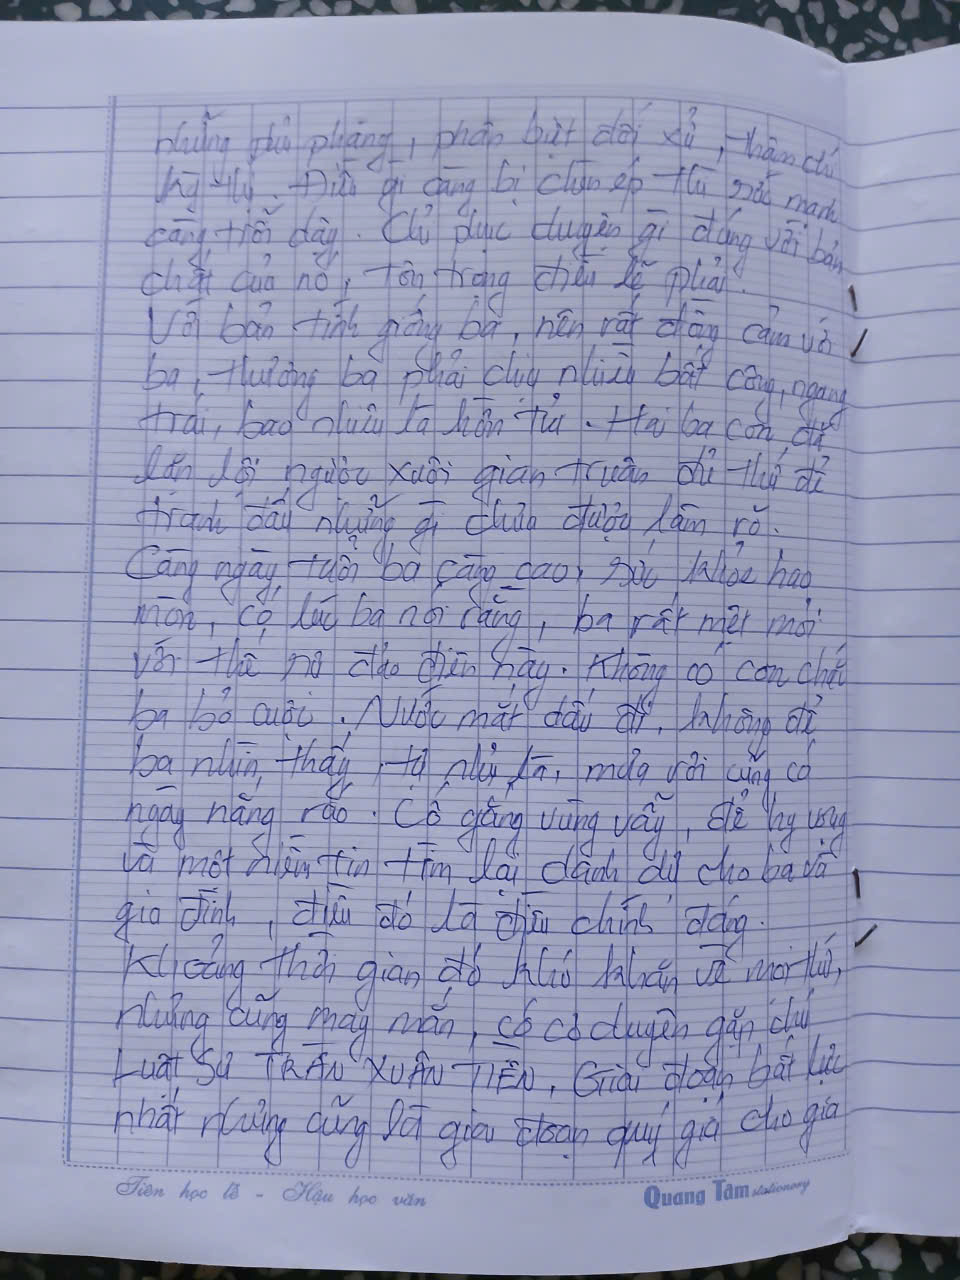 những phũ phàng, phân biệt đối xử, thậm chí
kỳ thị. Điều gì càng bị chèn ép thì sức mạnh
càng trỗi dậy. Chỉ duyên gì đúng với bản
chất của nó, tôn trọng điều lẽ phải.
Với bản tính giống ba, nên rất đồng cảm với
ba, thương ba phải chịu nhiều bất công, ngang
trái, bao nhiêu là hờn tủi. Hai ba con đã
lặn lội ngược xuôi gian truân đủ thứ để
tranh đấu những gì chưa được làm rõ.
Càng ngày tuổi ba càng cao, sức khỏe hao
mòn, có lúc ba nói rằng, ba rất mệt mỏi
với đảo điên này. Không có con chắc
ba bỏ cuộc. Nước mắt dấu đi, không để
ba nhìn thấy, tự nhủ là, mưa rồi cũng có
ngày nắng ráo. Cố gắng vững vàng, để hy vọng
và một niềm tin tìm lại danh dự cho ba và
gia đình, điều đó là điều chính đáng.
Khoảng thời gian đó khó khăn về mọi thứ,
nhưng cũng may mắn, có cơ duyên gặp chú
Luật Sư TRẦN XUÂN TIỀN, Giai đoạn bất lực
nhất nhưng cũng là giai đoạn quý giá cho gia
Tiên học lễ - Hậu học văn
Quang Tâm stationery